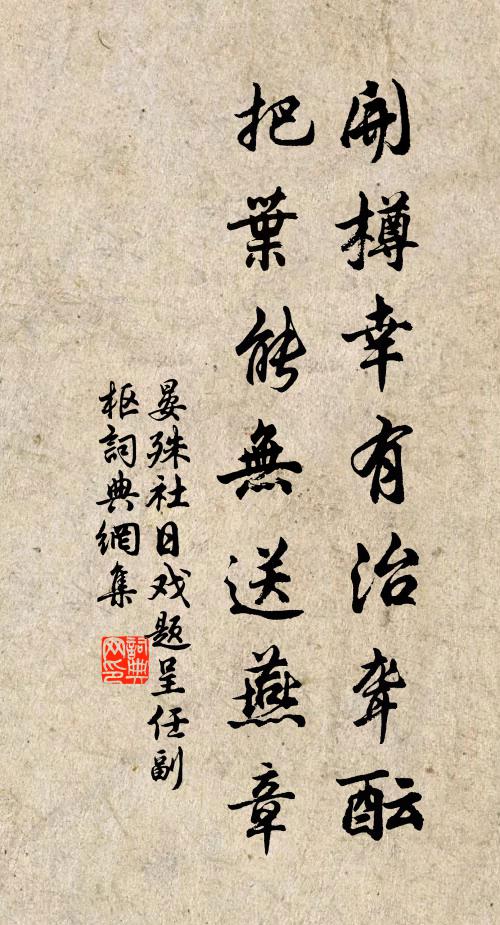 開樽幸有治聾酝
把葉能無送燕章
晏殊社日戏题呈任副
枢詞典網集
詞典網印